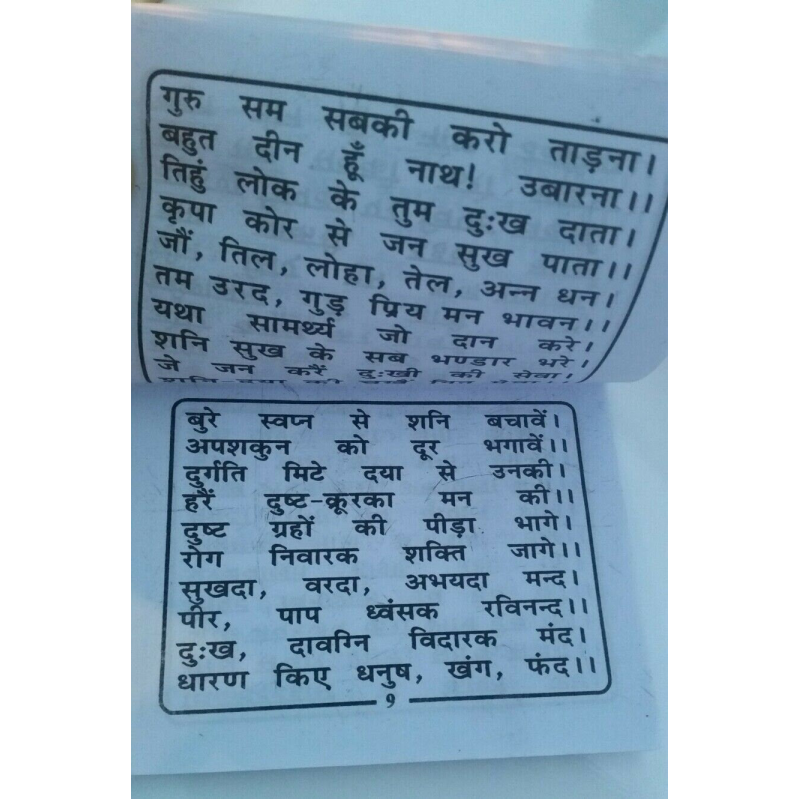 गुरु सम सबकी करो ताड़ना।
बहुत दीन हूँ नाथ! उबारना।।
तिहुं लोक के तुम दुःख दाता।
कृपा कोर से जन सुख पाता।।
जौं, तिल, लोहा, तेल, अन्न धन।
तम उरद, गुड़ प्रिय मन भावन।।
यथा सामर्थ्य जो दान करे।
शनि सुख के सब भण्डार भरे।
जे जन करैं दुःखी की सेवा।
बुरे स्वप्न से शनि बचावें।
अपशकुन को दूर भगावें।।
दुर्गति मिटे दया से उनकी।
हरैं दुष्ट-क्रूरका मन की।।
दुष्ट ग्रहों की पीड़ा भागे।
रोग निवारक शक्ति जागे।।
सुखदा, वरदा, अभयदा मन्द।
पीर, पाप ध्वंसक रविनन्द।।
दुःख, दावग्नि विदारक मंद।
धारण किए धनुष, खंग, फंद।।
9